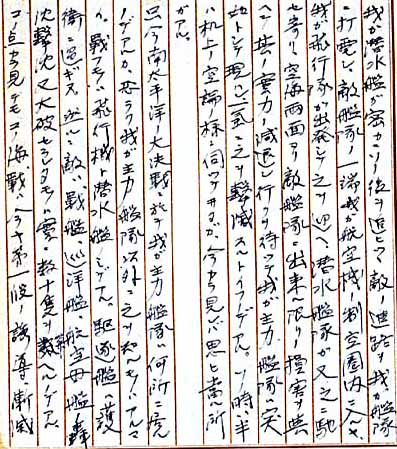 我ガ潜水艦ガ密カニソノ後ヲ追ヒツツ敵ノ進路ヲ我ガ艦隊
ニ打電シ、敵艦隊ノ一端我ガ航空機ノ制空圏内ニ入ルヤ
我ガ飛行隊ガ出発シテ之ヲ迎ヘ、潜水艦隊ガ又之ニ馳
セ寄リ、空海両面ヨリ敵艦隊ニ出来ル限リノ損害ヲ与
ヘ、其ノ実力ノ減退シ行クヲ待ツテ我ガ主力艦隊ハ突
如トシテ現ハレ一気ニ之ヲ撃滅スルトイフノデアル。ソノ時ハ半
机上ノ空論ノ様ニ伺ツテヰタガ、今カラ見レバ思ヒ当ル所
ガアル。
只今南太平洋ノ大決戦ニ於テ我ガ主力艦隊ハ何所ニ居ル
ノデアルカ、恐ラク我ガ主力艦隊以外ニ之ヲ知ルモノハアルマ
イ。戦フモノハ飛行機ト潜水艦トデアル。駆逐艦ハ護
衛ニ過ギズ、敵ハ戦艦、巡洋艦、航空母艦ノ轟
沈撃沈又大破セラレタモノ実ニ数十隻ヲ算ヘルノデアル
コノ点カラ見テモコノ海戦ハ今ヤ第一段ノ誘導漸減